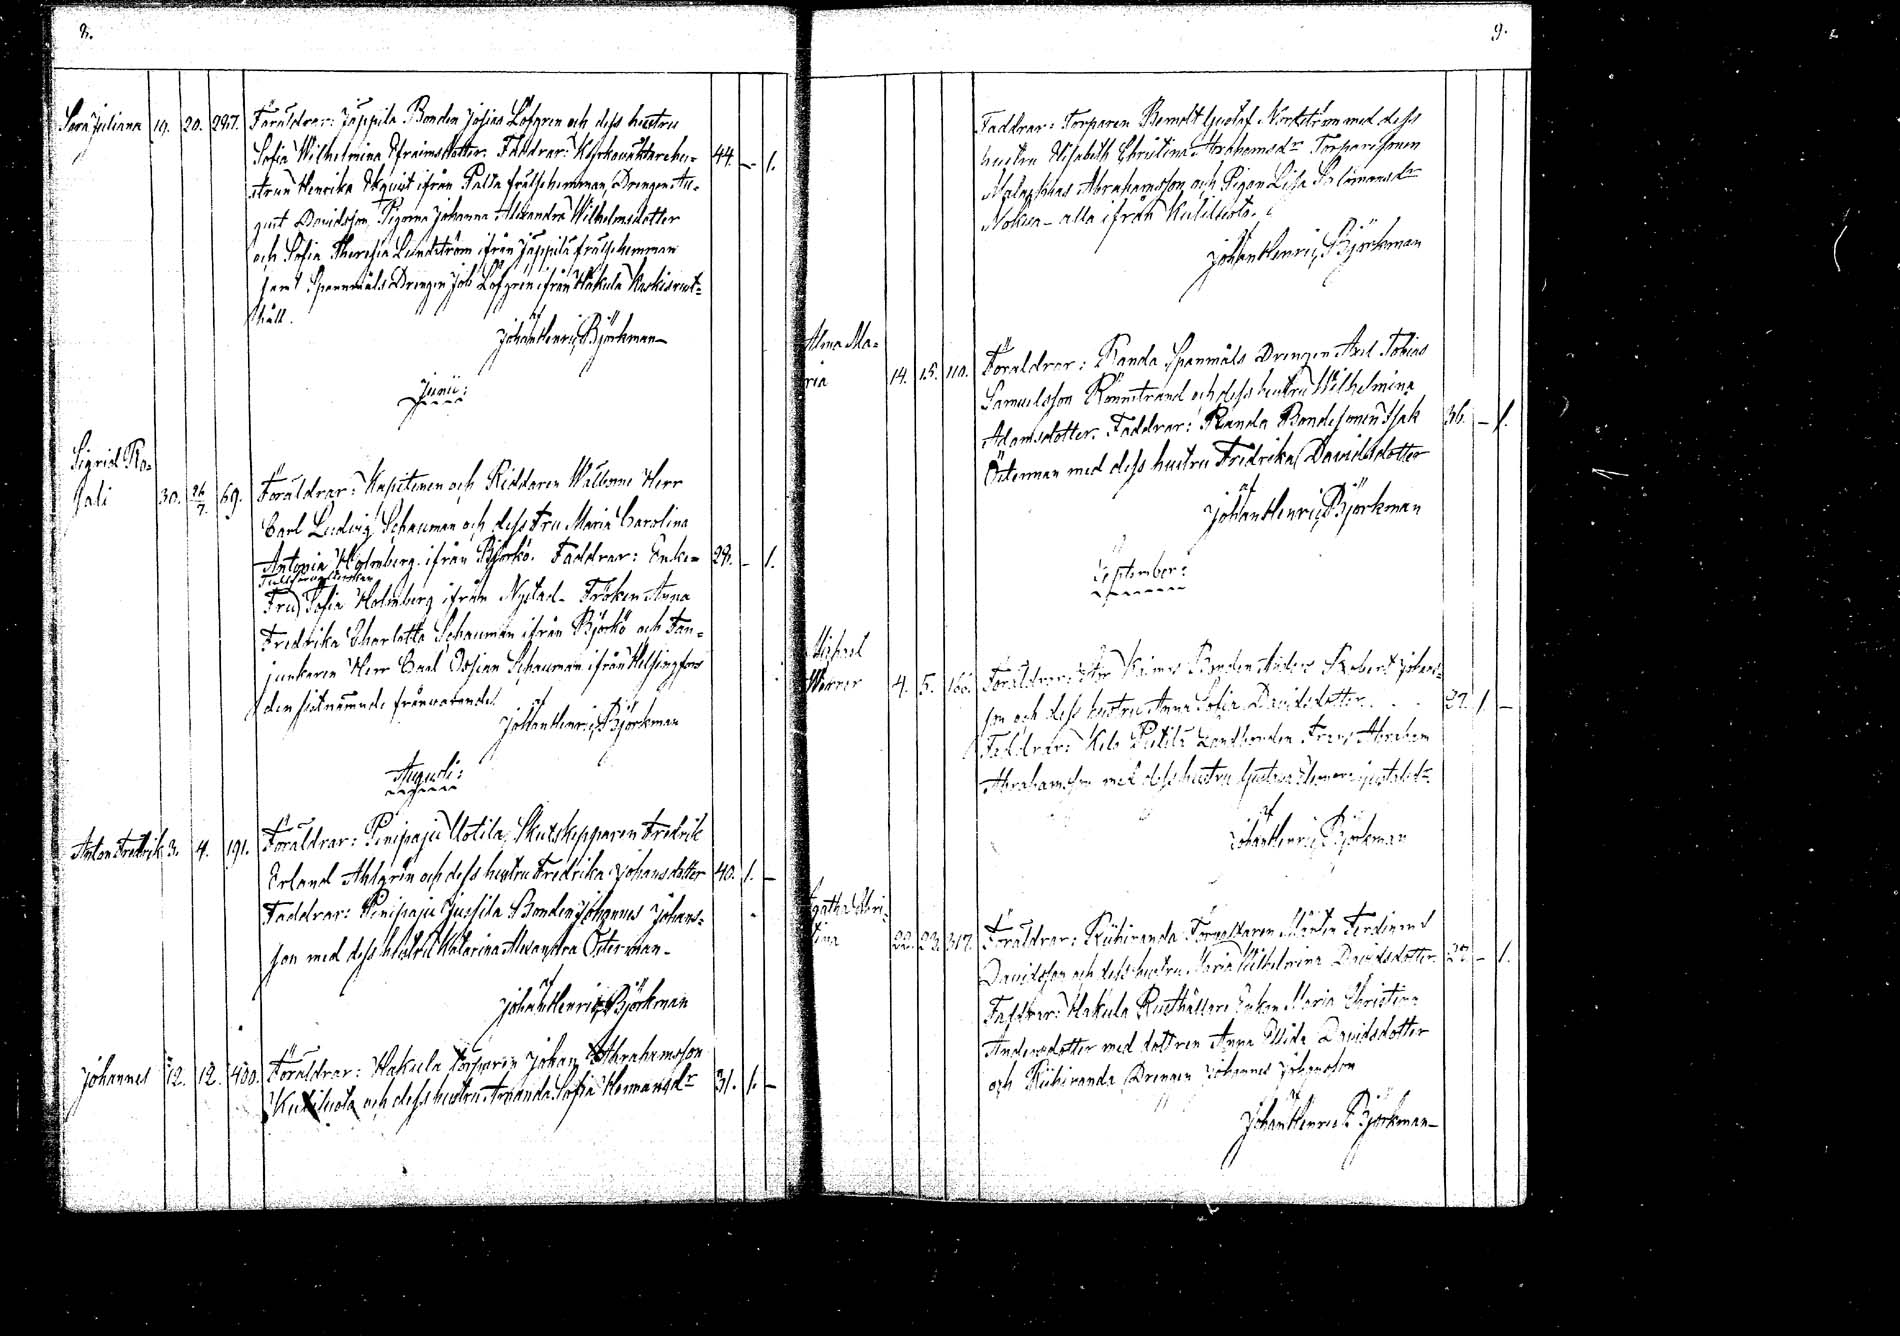 8.
Sara Juliana 19. 20. 287. Föräldrar: Jäppilä Bonden Josias Löfgren och dess hustru
Sofia Wilhelmina Efraimsdotter. Faddrar: Kyrkovaktarehu= 44. – 1.
strun Henrika Ekqvist ifrån Palsa frälsehemman, Drengen Au=
gust Davidsson, Pigorna Johanna Alexandra Wilhelmsdotter
och Sofia Theresia Lundström ifrån Jäppilä frälsehemman
samt Spannmåls Drengen Job Löfgren ifrån Hakula Kaskis rust=
håll.
af
Johan Henric Björkman
Junii:
Sigrid Ro=
sali 30. 26/7. 69. Föräldrar: Kapitenen och Riddaren Wälborne Herr
Carl Ludvig Schauman och dess Fru Maria Carolina
Antonia Holmberg ifrån Björkö. Faddrar: Enke= 28. – 1.
Tullförvalterskan
Fru Sofia Holmberg ifrån Nystad. Fröken Anna
Fredrika Charlotta Schauman ifrån Björkö och Fan=
junkeren Herr Carl Ossian Schauman ifrån Helsingfors
den sistnämnde frånvarande.
af
Johan Henric Björkman
Augusti:
Anton Fredrik 3. 4. 191. Föräldrar: Pinipaju Uotila Skutskepparen Fredrik
Erland Ahlgrén och dess hustru Fredrika Johansdotter 40. 1. –
Faddrar: Pinipaju Jussila Bonden Johannes Johans=
son med dess hustru Katarina Alexandra Österman.
af
Johan Henric Björkman
Johannes 12. 12. 400. Föräldrar: Hakula Torparen Johan Abrahamsson
Kulisuota och dess hustru Amanda Sofia Hermansdr 31. 1. –
9.
Faddrar: Torparen Berndt Gustaf Nordström med dess
hustru Elisabeth Christina Abrahamsdr Torparesonen
Malakias Abrahamsson och Pigan Lisa Salomansdr
Nokka – alla ifrån Kulisuota.
af
Johan Henric Björkman
Alma Ma=
ria 14. 15. 110. Föräldrar: Randa Spanmåls Drengen Axel Tobias
Samuelsson Rönnstrand och dess hustru Wilhelmina
Adamsdotter. Faddrar: Randa Bondesonen Isak 36. – 1.
Österman med dess hustru Fredrika Davidsdotter
af
Johan Henric Björkman
September:
Mikael
Werner 4. 5. 166. Föräldrar: Robert Johans=
son och dess hustru Anna Sofia Davidsdotter. 27. 1. –
Faddrar: Landbonden Frans Abraham
Abrahamsson med dess hustru Gustava
af
Johan Henric Björkman
Agatha Kris=
tina 22. 23. 317. Föräldrar: Riihiranda Torparen Mårten Ferdinand
Davidsson och dess hustru Maria Wilhelmina Davidsdotter – 1.
Faddrar: Hakula Rusthållare Enkan Maria Christina
Andersdotter med dottren Anna Davidsdotter
och Riihiranda Drengen Johannes Johansson
af
Johan Henric Björkman